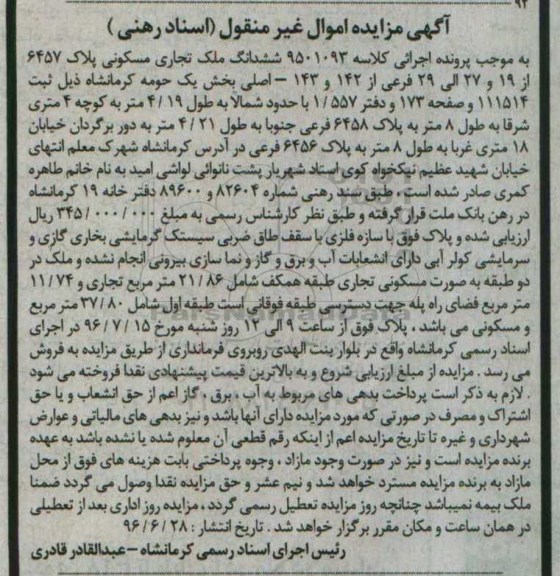 ۹۲
آگهی مزایده اموال غیر منقول (اسناد رهنی)
به موجب پرونده اجرائی کلاسه ۹۵۰۱۰۹۳ ششدانگ ملک تجاری مسکونی پلاک ۶۴۵۷
از ۱۹ و ۲۷ الی ۲۹ فرعی از ۱۴۲ و ۱۴۳ – اصلی بخش یک حومه کرمانشاه ذیل ثبت
۱۱۱۵۱۴ و صفحه ۱۷۳ و دفتر ۱/۵۵۷ با حدود شمالا به طول ۴/۱۹ متر به کوچه ۴ متری
شرقا به طول ۸ متر به پلاک ۶۴۵۸ فرعی جنوبا به طول ۴/۲۱ متر به دور برگردان خیابان
۱۸ متری غربا به طول ۸ متر به پلاک ۶۴۵۶ فرعی در آدرس کرمانشاه شهرک معلم انتهای
خیابان شهید عظیم نیکخواه کوی استاد شهریار پشت نانوائی لواشی امید به نام خانم طاهره
کمری صادر شده است ، طبق سند رهنی شماره ۸۲۶۰۴ و ۸۹۶۰۰ دفتر خانه ۱۹ کرمانشاه
در رهن بانک ملت قرار گرفته و طبق نظر کارشناس رسمی به مبلغ ۳۴۵/۰۰۰/۰۰۰ ریال
ارزیابی شده و پلاک فوق با سازه فلزی با سقف طاق ضربی سیستک گرمایشی بخاری گازی و
سرمایشی کولر آبی دارای انشعابات آب و برق و گاز و نما سازی بیرونی انجام نشده و ملک در
دو طبقه به صورت مسکونی تجاری طبقه همکف شامل ۲۱/۸۶ متر مربع تجاری و ۱۱/۷۴
متر مربع فضای راه پله جهت دسترسی طبقه فوقانی است طبقه اول شامل ۳۷/۸۰ متر مربع
و مسکونی می باشد ، پلاک فوق از ساعت ۹ الی ۱۲ روز شنبه مورخ ۹۶/۷/۱۵ در اجرای
اسناد رسمی کرمانشاه واقع در بلوار بنت الهدی روبروی فرمانداری از طریق مزایده به فروش
می رسد . مزایده از مبلغ ارزیابی شروع و به بالاترین قیمت پیشنهادی نقدا فروخته می شود
. لازم به ذکر است پرداخت بدهی های مربوط به آب ، برق ، گاز اعم از حق انشعاب و یا حق
اشتراک و مصرف در صورتی که مورد مزایده دارای آنها باشد و نیز بدهی های مالیاتی و عوارض
شهرداری و غیره تا تاریخ مزایده اعم از اینکه رقم قطعی آن معلوم شده یا نشده باشد به عهده
برنده مزایده است و نیز در صورت وجود مازاد ، وجوه پرداختی بابت هزینه های فوق از محل
مازاد به برنده مزایده مسترد خواهد شد و نیم عشر و حق مزایده نقدا وصول می گردد ضمنا
ملک بیمه نمیباشد چنانچه روز مزایده تعطیل رسمی گردد ، مزایده روز اداری بعد از تعطیلی
در همان ساعت و مکان مقرر برگزار خواهد شد . تاریخ انتشار : ۹۶/۶/۲۸
رئیس اجرای اسناد رسمی کرمانشاه – عبدالقادر قادری
ParsNamadData